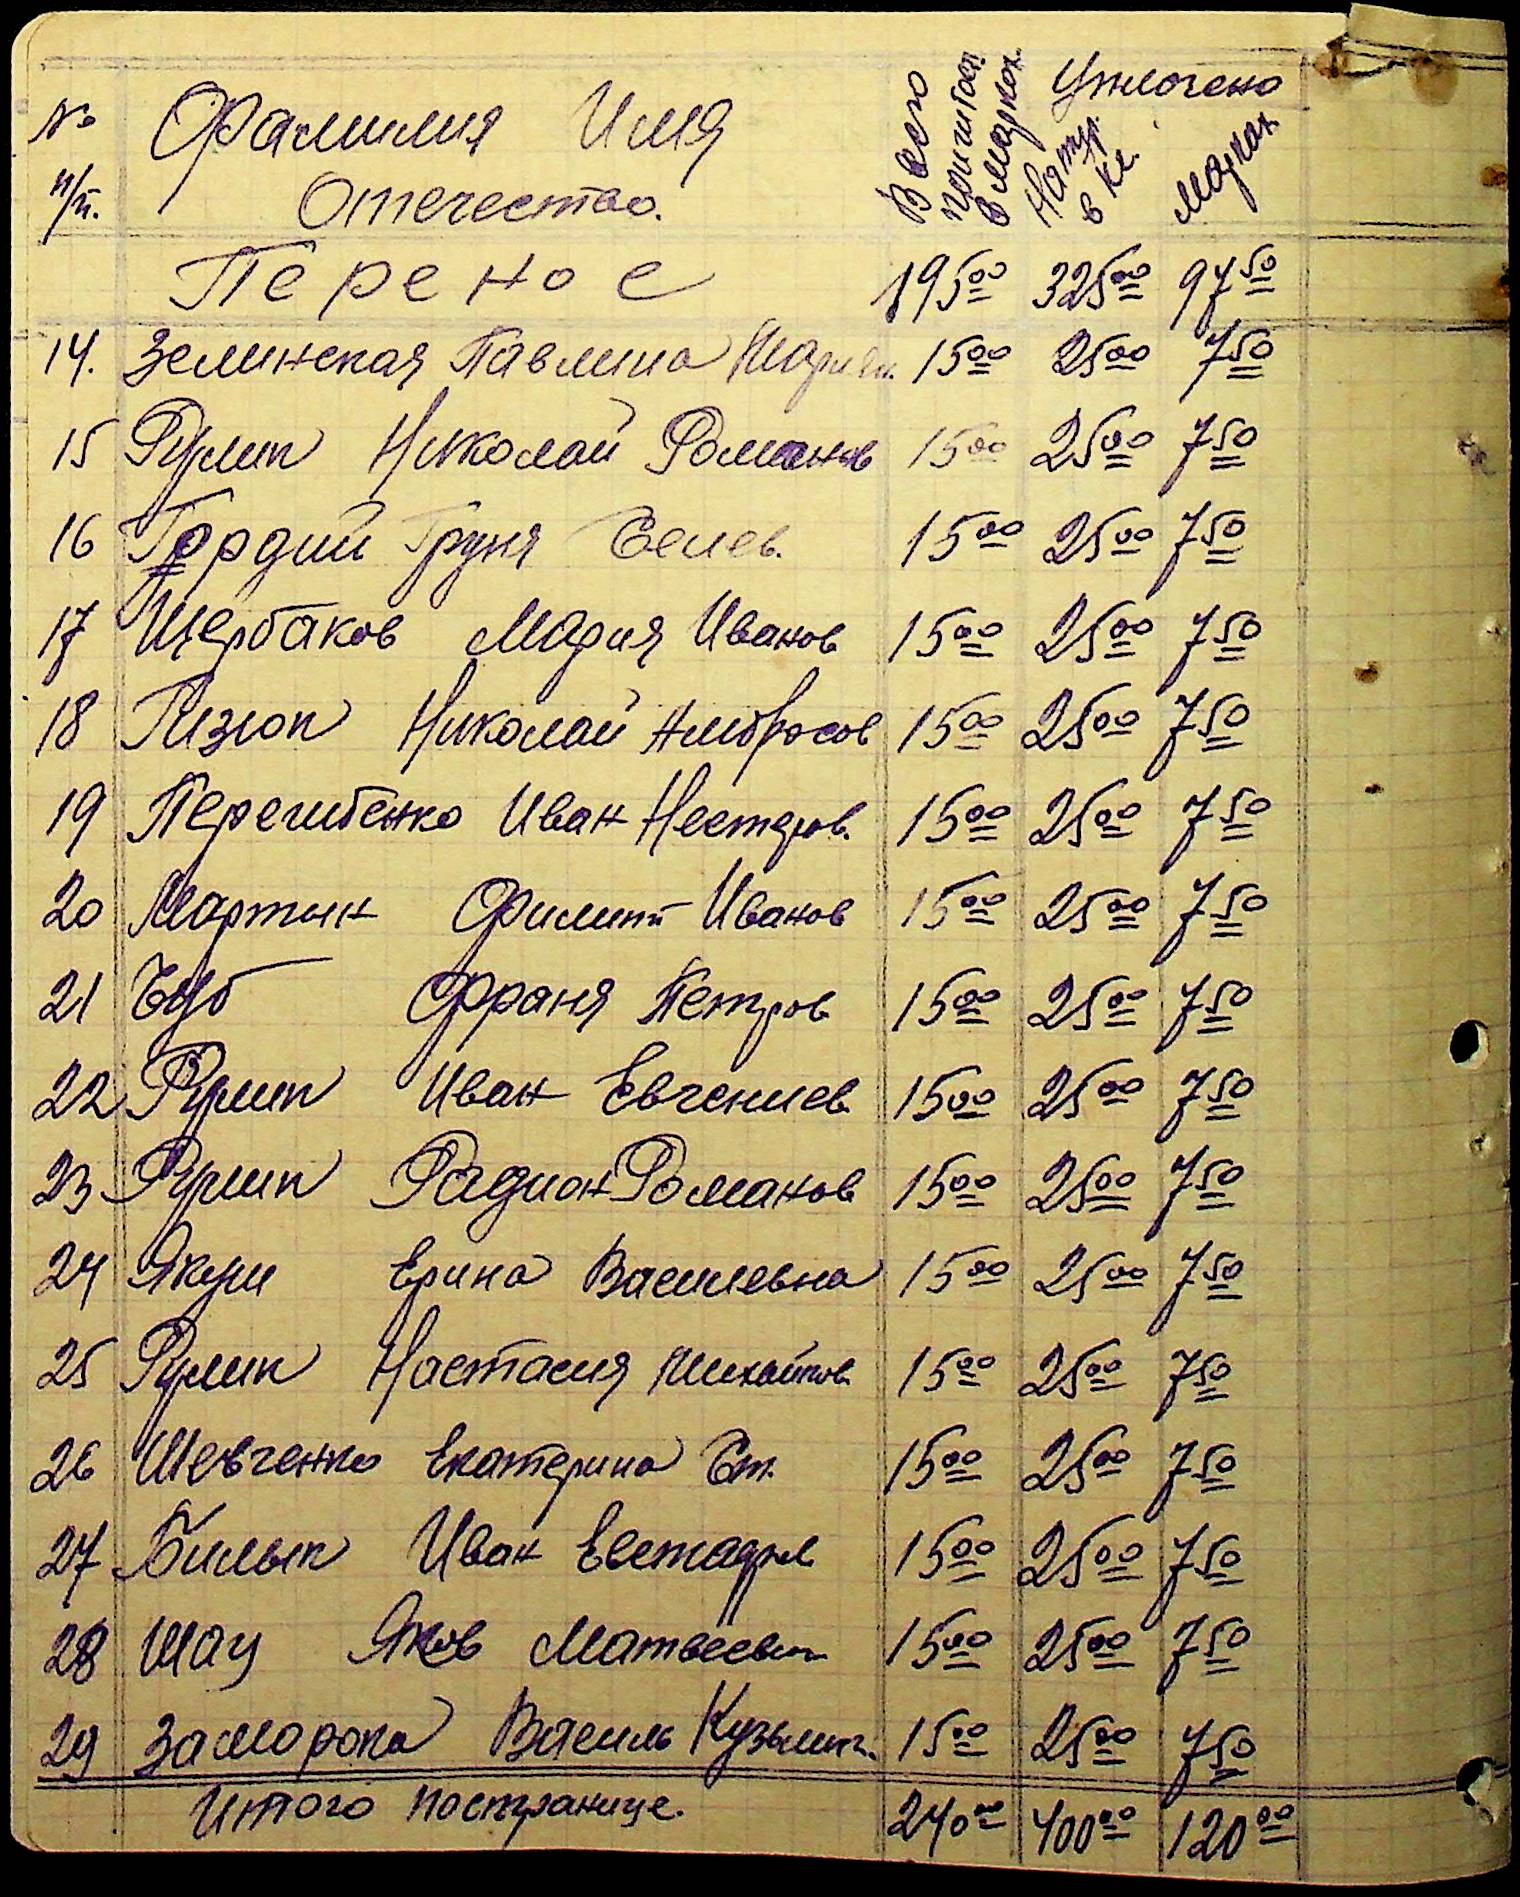 № п/п. Фамилия Имя Отечество. Всего причитает. в марках Уплочено Натур. в кг. марках
Перенос 195 00 325 00 97 50
14. Зелинская Павлина Мариян. 15 00 25 00 7 50
15 Рулик Николай Романов 15 00 25 00 7 50
16 Гордий Груня Селев. 15 00 25 00 7 50
17 Щербаков Мария Иванов 15 00 25 00 7 50
18 Кизюк Николай Амбросов 15 00 25 00 7 50
19 Перегибенко Иван Нестеров. 15 00 25 00 7 50
20 Мартын Филипп Иванов 15 00 25 00 7 50
21 Чуб Франя Петров 15 00 25 00 7 50
22 Рулик Иван Евгениев. 15 00 25 00 7 50
23 Рулик Радион Романов 15 00 25 00 7 50
24 Ерина Василевна 15 00 25 00 7 50
25 Рулик Настасия Михайлов. 15 00 25 00 7 50
26 Шевченко Екатерина Ст. 15 00 25 00 7 50
27 Билык Иван 15 00 25 00 7 50
28 Шац Яков Матвеевич 15 00 25 00 7 50
29 Заморока Василь Кузьмич. 15 00 25 00 7 50
Итого по странице. 240 00 400 00 120 00